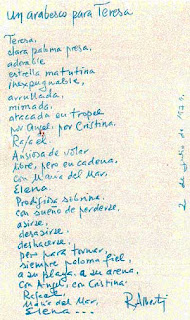 un arabesco para Teresa
Teresa,
clara paloma presa,
adorable
estrella matutina
inexpugnable,
arrullada,
mimada,
atacada en tropel
por Angel, por Cristina.
Rafael.
Ansiosa de volar
libre, pero en cadena.
con María del Mar.
Elena
Prodigiosa sobrina.
con sueño de perderse,
asirse,
desasirse,
deshacerse,
pero para tornar,
siempre paloma fiel,
a su playa, a su arena,
con Angel, con Cristina.
Rafael.
María del Mar.
Elena...
R. Alberti
2 de julio de